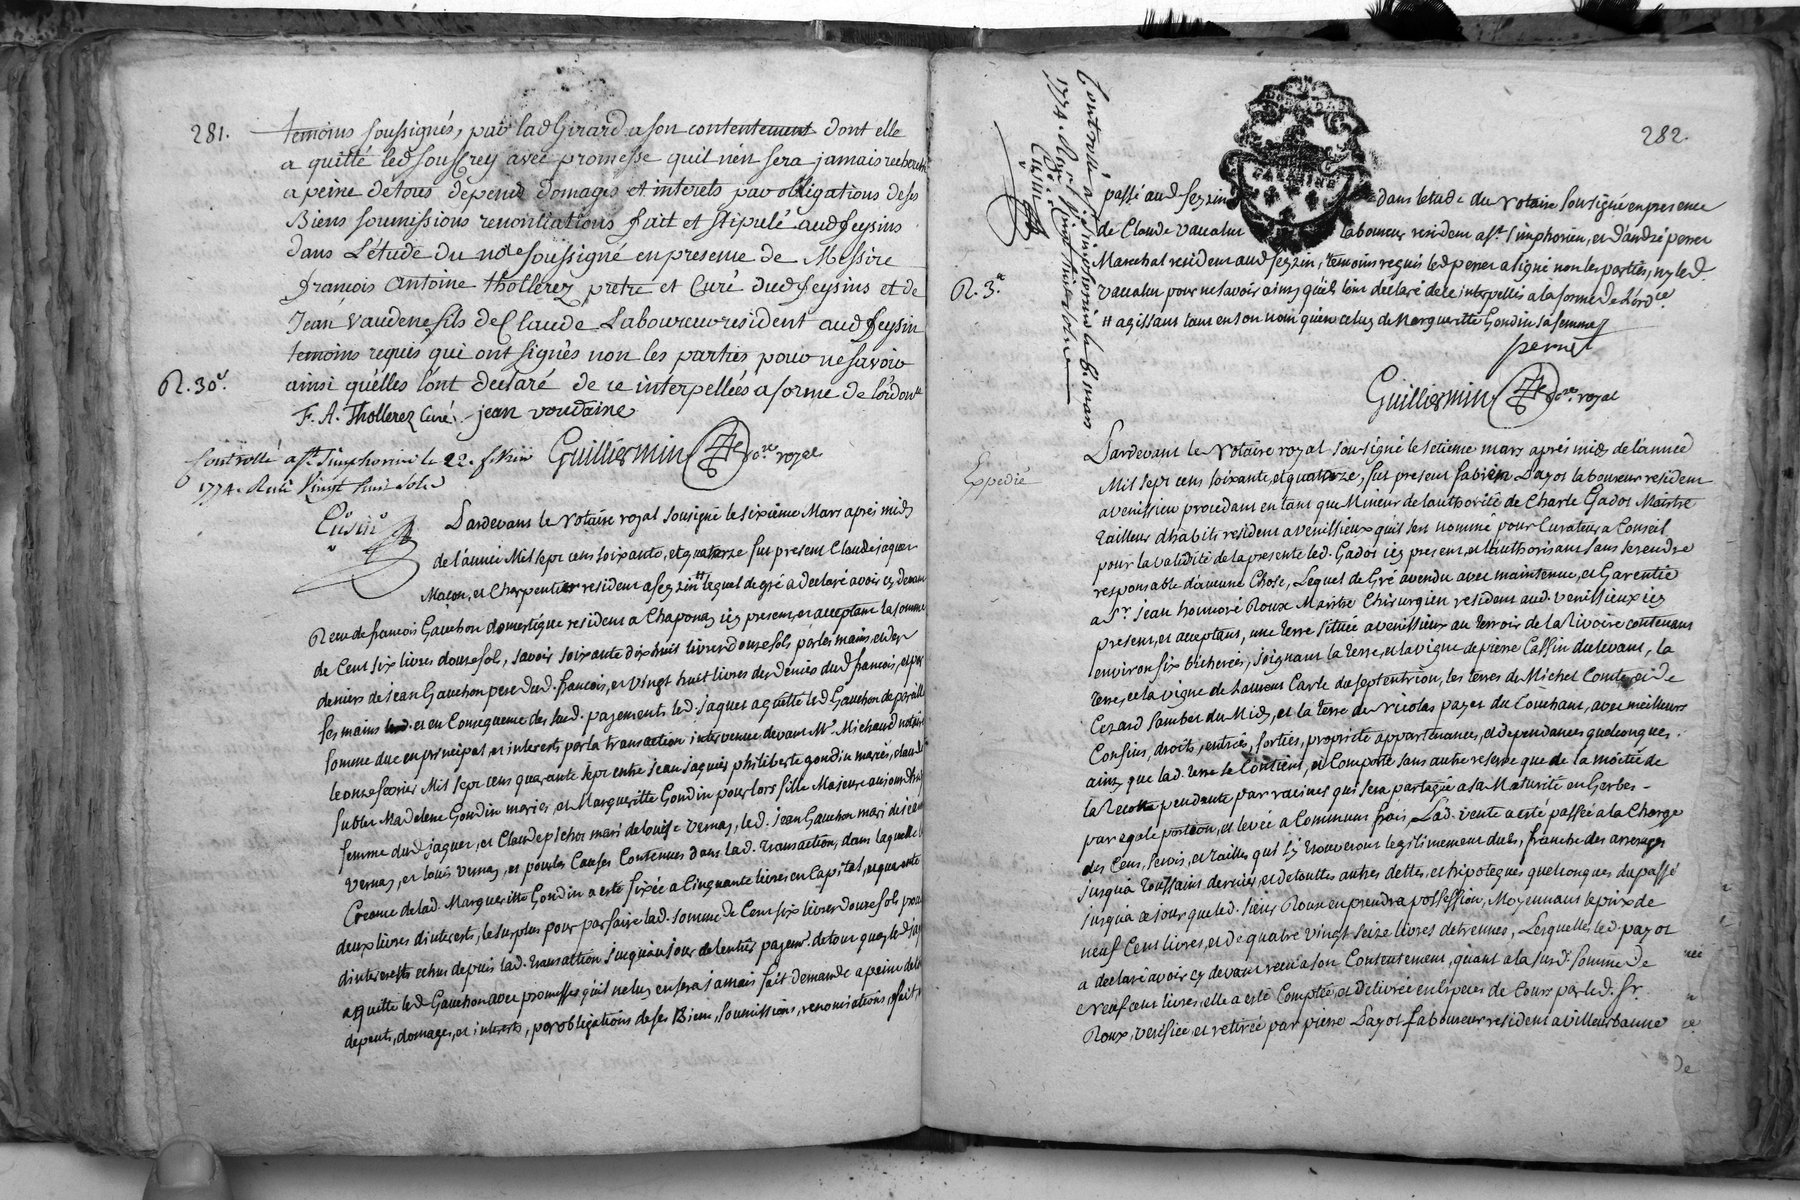 281.
temoins soussignés, par lad Girard a son contentement dont elle
a quitté led souscrey avec promesse quil n'en sera jamais recherché
a peine de tous depend domages et interets par obligations de ses
Biens soumissions renontiations fait et stipulé aud feysins
dans L'étude du nore soussigné en presence de Messire
françois Antoine thollerez pretre et Curé dud feysins et de
Jean vaudene fils de Claude Laboureur resident aud feysin
temoins requis qui ont signés non les parties pour ne savoir
ainsi qu'elles l'ont declaré de ce interpellées a forme de l'ordonce
R. 30s.
F. A. Thollerez Curé. jean voudaine
Guilliermin nore. royal
Controllé a st. Simphorien le 22. fevrier
1774. Reçu vingt huit sols
Cusin
Pardevant le Notaire royal soussigné le sixième Mars après midy
de l'année Mil sept cens soixante, et quatorze fut present Claude jaquer
Maçon, et Charpentier resident a feyzin # lequel de gré a declaré avoir cy devant
Receu de francois Gauchon domestique resident a Chaponay icy present, et acceptant la somme
de Cent six livres douze sols, savoir soixante dix huit livres douze sols par les mains, et des
deniers de jean Gauchon pere dud. francois, et vingt huit livres des deniers dud francois, et par
ses mains et en Consequence des susd. payements led. jaquer a quitté led Gauchon de pareille
somme due en principal et interests par la transaction intervenue devant Mr. Michaud notaire
le onze fevrier Mil sept cens quarante sept entre jean jaquier philiberte gondin mariés, claude
sublet Madelene Gondin mariés, et Margueritte Gondin pour lors fille Majeure aujourdhuy
femme dud jaquer, et Claude pichot mari de louise Vernay, led. jean Gauchon mari de
Vernay, et louis Vernay, et pour les Causes Contenues dans lad. transaction, dans laquelle la
Creance de lad. Margueritte Gondin a esté fixée a Cinquante livres en Capital, et quarante
deux livres d'interests, le surplus pour parfaire lad. somme de Cent six livres douze sols
d'interests echus depuis lad. transaction jusqu'au jour de l'entier payemt. de tout quoy led
a quitté led Gauchon avec promesses qu'il ne luy en sera jamais fait demande a peine de
depents, domages, et interests, par obligations de ses Biens, soumissions, renonciations, fait,
Controllé a st. Simphorien le 8. mars
1774. Reçu vingt huit sols
Cusin
282.
passé aud feyzin dans l'etude du Notaire soussigné en presence
de Claude Vacalut laboureur resident a st. Simphorien, et d'andré pernet
Marechal resident aud feyzin, temoins requis led pernet a signé non les parties, ny led
Vacalut pour ne savoir ainsy qu'ils l'ont declaré de ce interpellés a la forme de l'ordce.
R. 3s.
# agissant tant en son nom qu'en celuy de Margueritte Gondin sa femme
pernet
Guilliermin nore. royal
Expedié
Pardevant le Notaire royal soussigné le setieme mars après midy de l'année
Mil sept cens soixante, et quatorze, fut present fabien Payot laboureur resident
a venissieu procedant en tant que Mineur de l'authorité de Charle Gados Maitre
tailleur d'habits resident a venissieux quil s'est nommé pour Curateur a Conseil
pour la validité de la presente led. Gados icy present, et l'authorisant sans se rendre
responsable d'aucune Chose, Lequel de Gré a vendu avec maintenue, et Garentie
a Sr. jean honnoré Roux Maitre Chirurgien resident aud. venissieux icy
present, et acceptant, une terre située a venissieux au terroir de la Rivoire contenant
environ six bicherées, joignant la terre, et la vigne de pierre Cassin du levant, la
terre, et la vigne de Laurent Carle du septentrion, les terres de Michel Comte et de
Cezard Sambet du Midy, et la terre de Nicolas payet du Couchant, avec meilleurs
Confins, droits, entrées, sorties, proprieté appartenances, et dependances quelconques.
ainsy que lad. terre se Contient, et Comporte sans autre reserve que de la moitié de
la Recolte pendante par racines qui sera partagée a sa Maturité en Gerbes -
par egale portion, et levée a Communs frais, Lad. vente a eté passée a la Charge
des Cens, servis, et tailles qui s'y trouveront legitimement dubs, franche des arrerages
jusqu'à toussaint dernier, et de touttes autres dettes, et hipoteques quelconques du passé
jusqu'à ce jour que led. sieur Roux en prendra possession, Moyennant le prix de
neuf Cent livres, et de quatre vingt seize livres d'etrennes, Lesquelles led. payot
a declaré avoir cy devant receu a son Contentement, quant a la susd. somme de
Neuf cent livres, elle a esté Comptée, et delivrée en Especes de Cours par led. Sr.
Roux, verifiée, et retirée par pierre Payot laboureur resident a villeurbanne